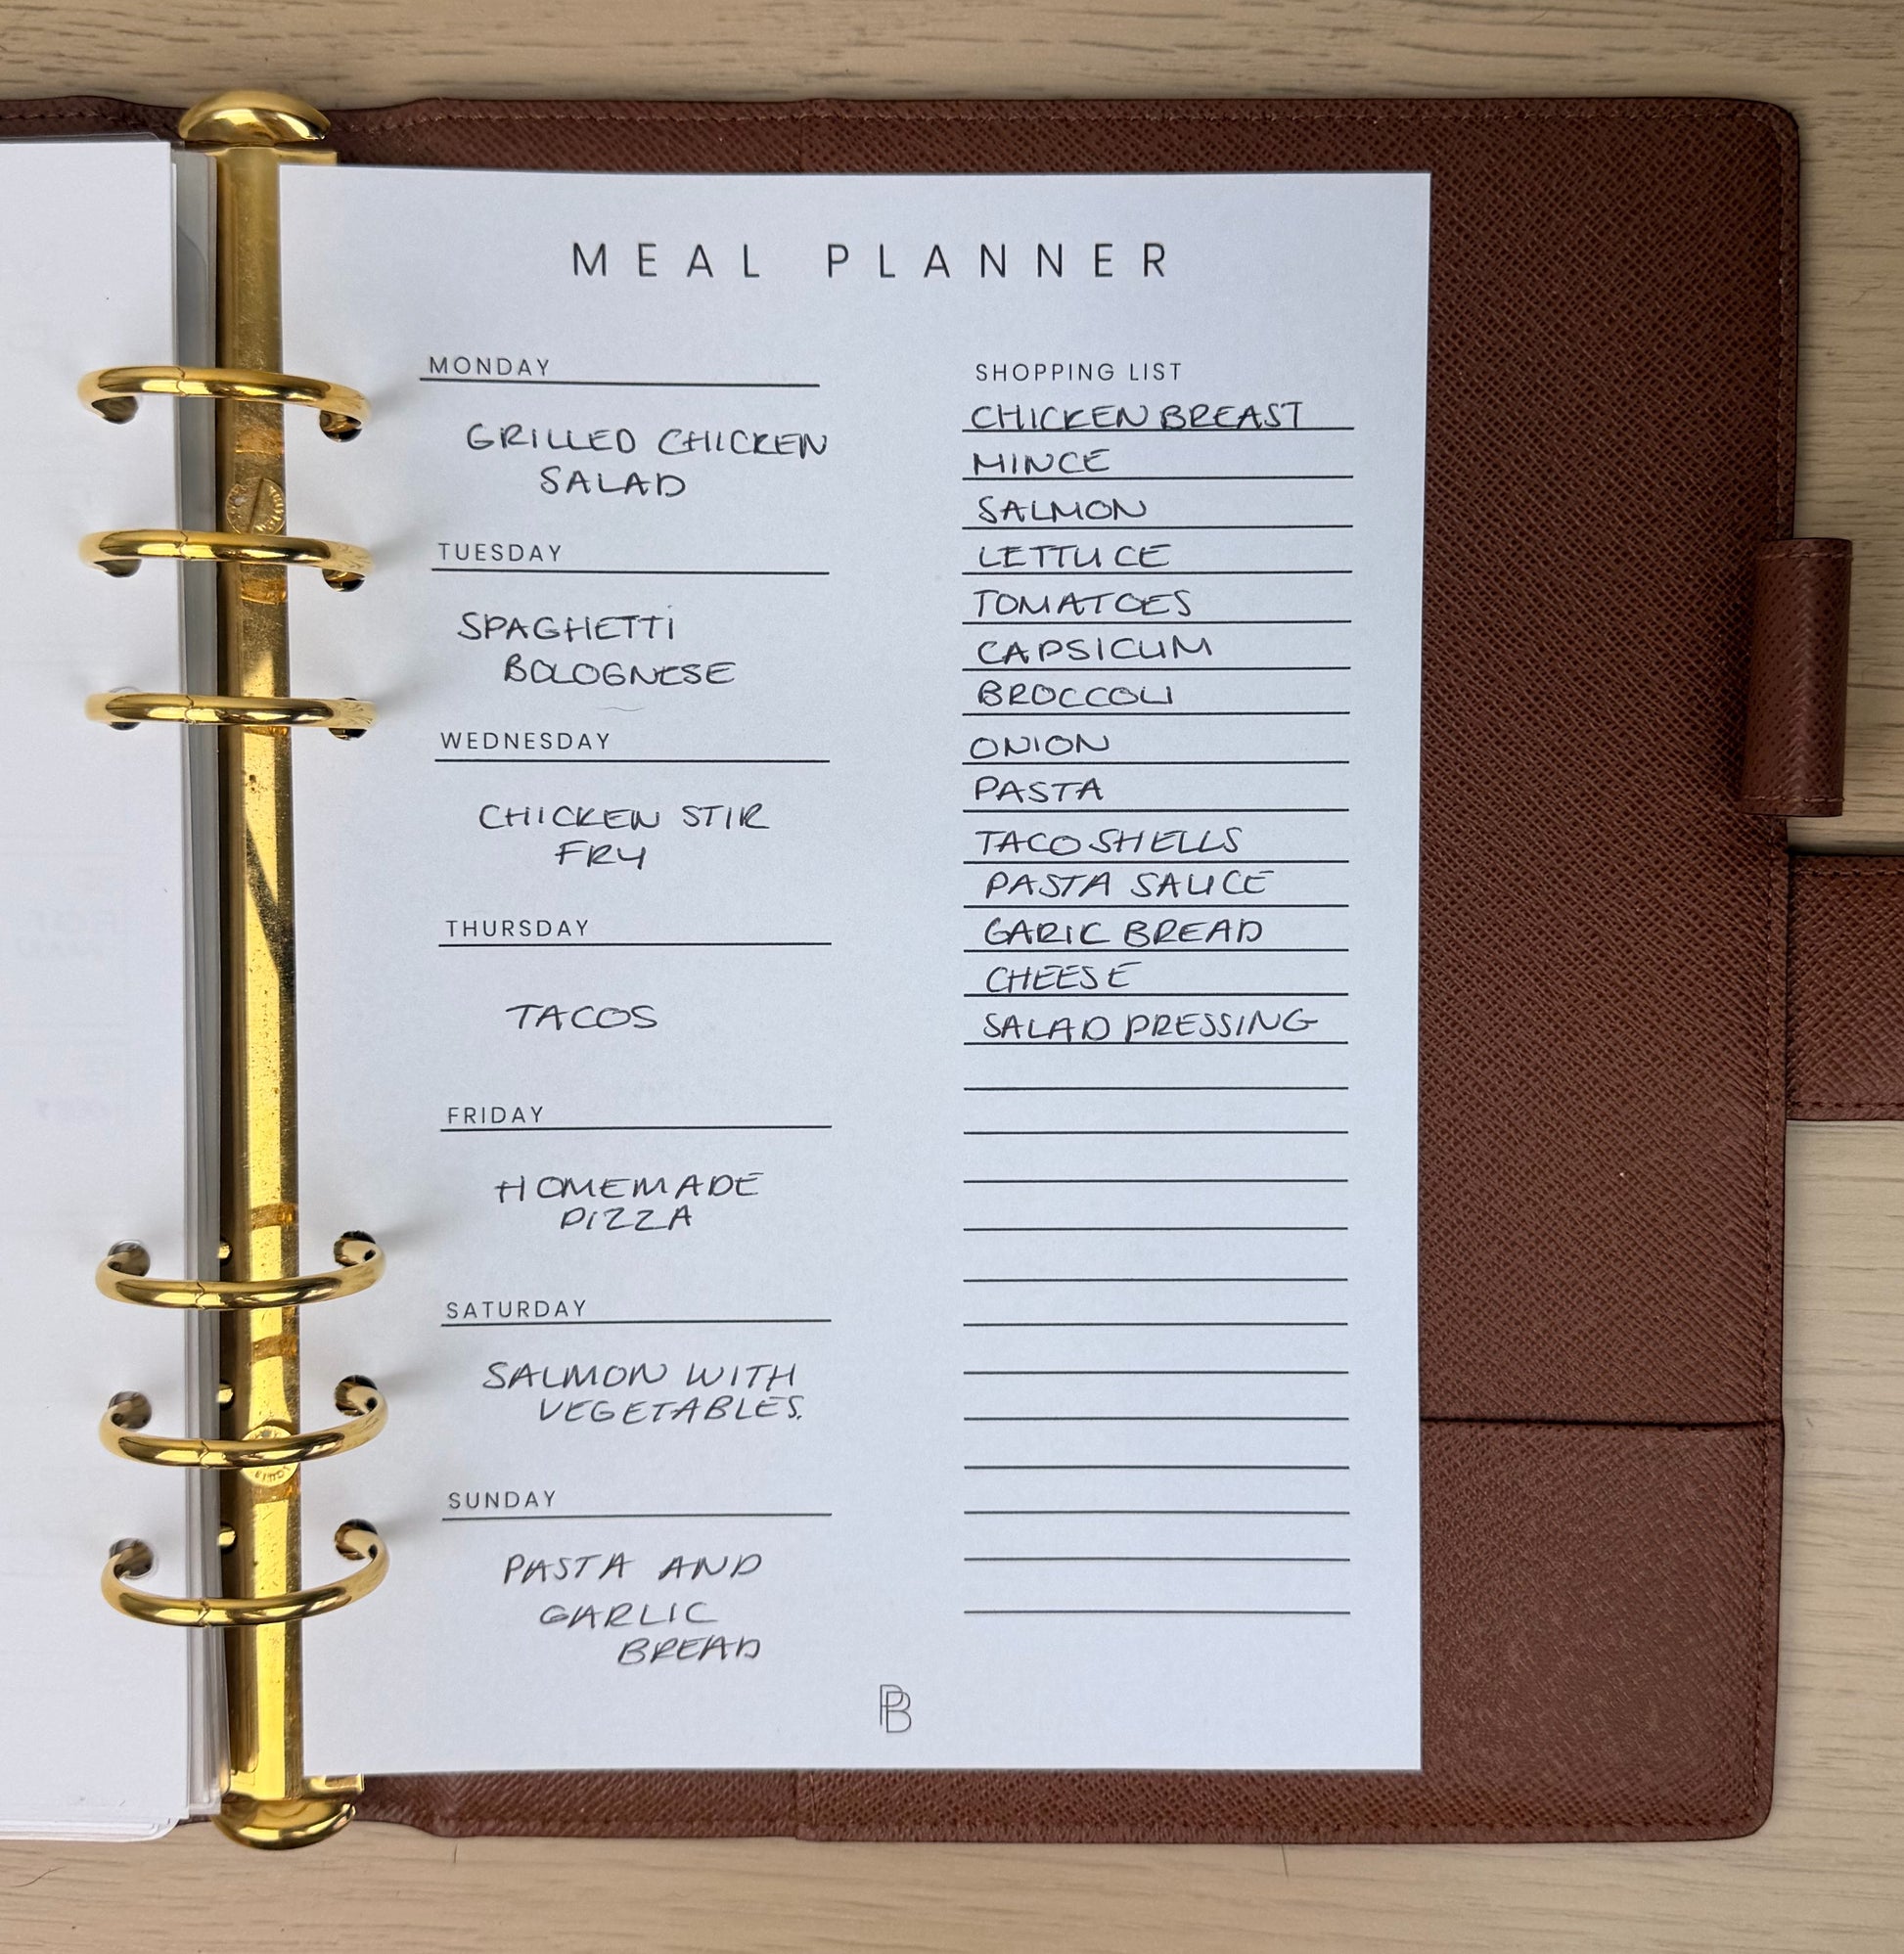 MEAL PLANNER
MONDAY
GRILLED CHICKEN
SALAD
TUESDAY
SPAGHETTI
BOLOGNESE
WEDNESDAY
CHICKEN STIR
FRY
THURSDAY
TACOS
FRIDAY
HOMEMADE
PIZZA
SATURDAY
SALMON WITH
VEGETABLES.
SUNDAY
PASTA AND
GARLIC
BREAD
SHOPPING LIST
CHICKEN BREAST
MINCE
SALMON
LETTUCE
TOMATOES
CAPSICUM
BROCCOLI
ONION
PASTA
TACO SHELLS
PASTA SAUCE
GARIC BREAD
CHEESE
SALAD DRESSING
PB